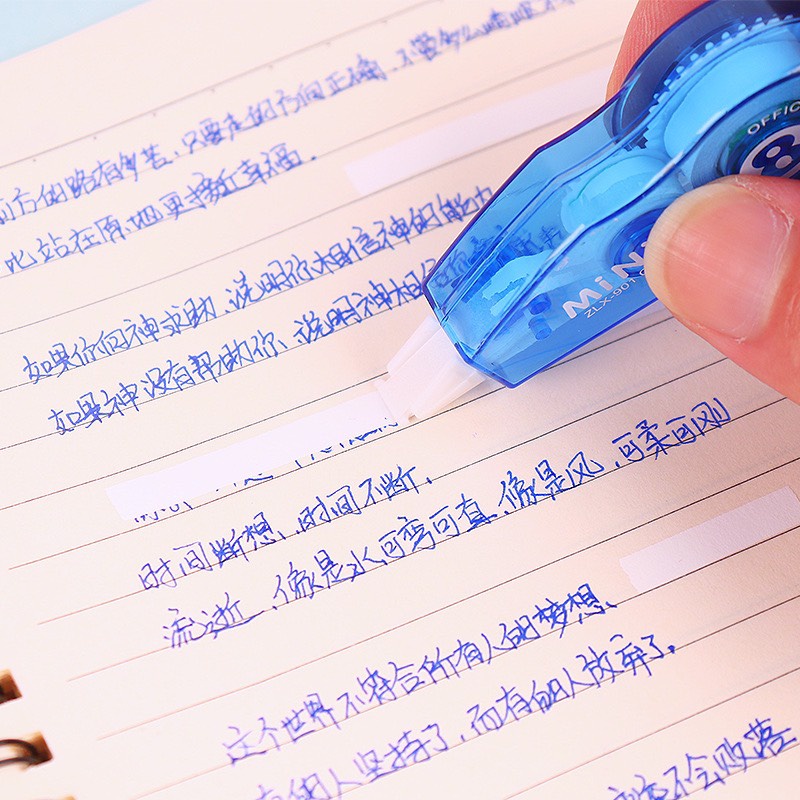 前方的路有多苦、只要走的方向正确、不管多么崎岖不
比站在原地更接近幸福.
如果你向神求助、说明你相信神的能力
如果神没有帮助你、说明神相信你
时间断想、时间不断.
流逝、像是水可弯可直、像是风、可柔可刚
这个世界不符合所有人的梦想、
有的人坚持了,而有的人放弃了.
不会败落
OFFIC
8
MiNi
ZLX-901